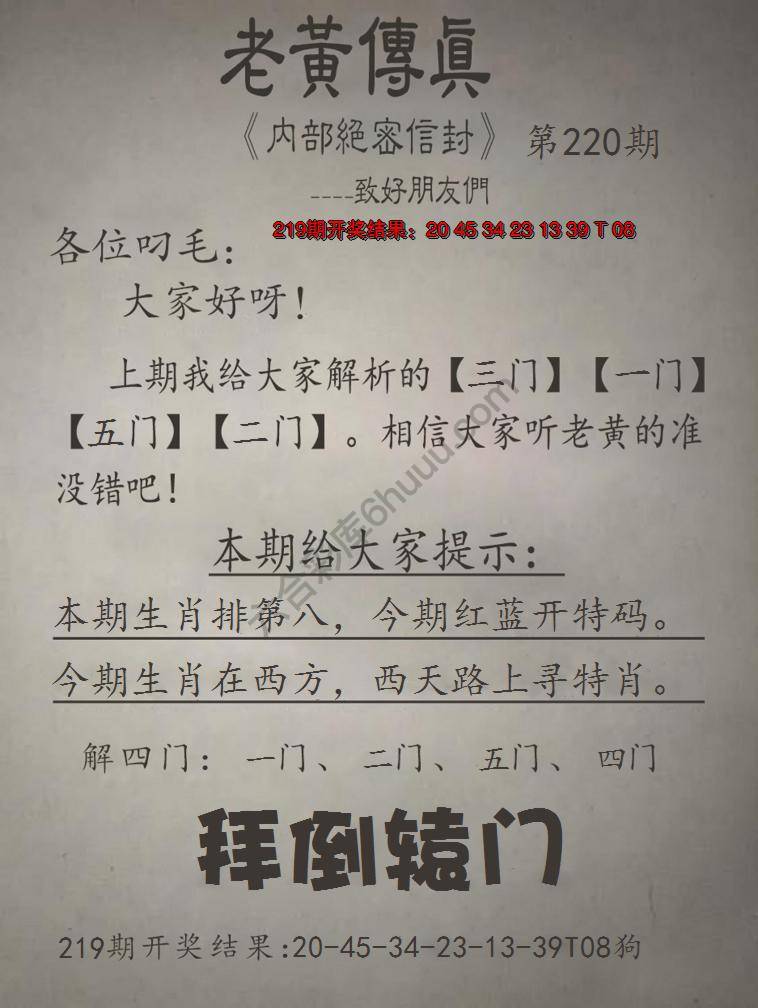 老黃傳真
《内部絕密信封》 第220期
----致好朋友們
219期开奖结果：20 45 34 23 13 39 T 08
各位叼毛：
大家好呀！
上期我给大家解析的【三门】【一门】
【五门】【二门】。相信大家听老黄的准
没错吧！
本期给大家提示：
本期生肖排第八，今期红蓝开特码。
今期生肖在西方，西天路上寻特肖。
解四门：一门、二门、五门、四门
拜倒辕门
219期开奖结果:20-45-34-23-13-39T08狗
六合彩库6huuu.com